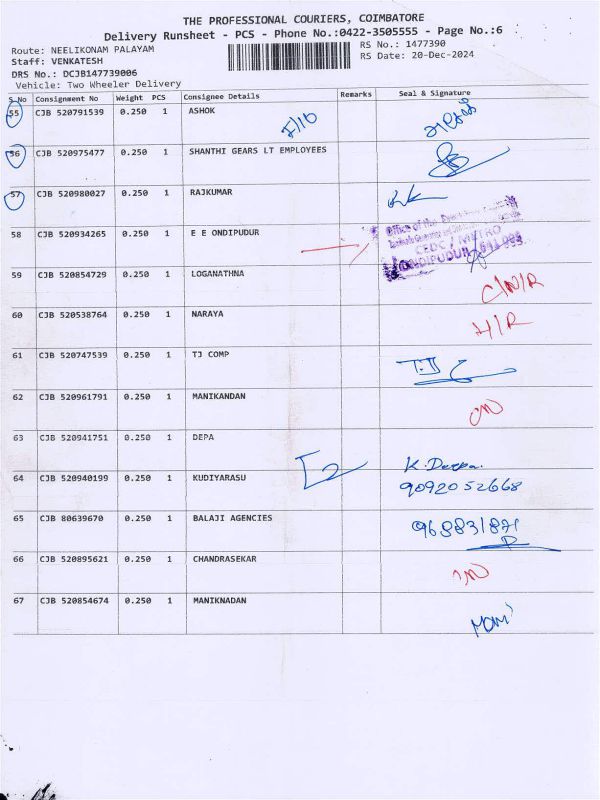 THE PROFESSIONAL COURIERS, COIMBATORE
Delivery Runsheet - PCS - Phone No.:0422-3505555 - Page No.:6
Route: NEELIKONAM PALAYAM
RS No.: 1477390
Staff: VENKATESH
RS Date: 20-Dec-2024
DRS No.: DCJB147739006
Vehicle: Two Wheeler Delivery
S No Consignment No Weight PCS Consignee Details Remarks Seal & Signature
55 CJB 520791539 0.250 1 ASHOK
56 CJB 520975477 0.250 1 SHANTHI GEARS LT EMPLOYEES
57 CJB 520980027 0.250 1 RAJKUMAR
58 CJB 520934265 0.250 1 E E ONDIPUDUR
Office of the
CEDC / METRO
ONDIPUDUR
59 CJB 520854729 0.250 1 LOGANATHNA C/N/R
60 CJB 520538764 0.250 1 NARAYA
61 CJB 520747539 0.250 1 TJ COMP
62 CJB 520961791 0.250 1 MANIKANDAN
63 CJB 520941751 0.250 1 DEPA
64 CJB 520940199 0.250 1 KUDIYARASU K. Deepa
9092052668
65 CJB 80639670 0.250 1 BALAJI AGENCIES
66 CJB 520895621 0.250 1 CHANDRASEKAR
67 CJB 520854674 0.250 1 MANIKNADAN Mani